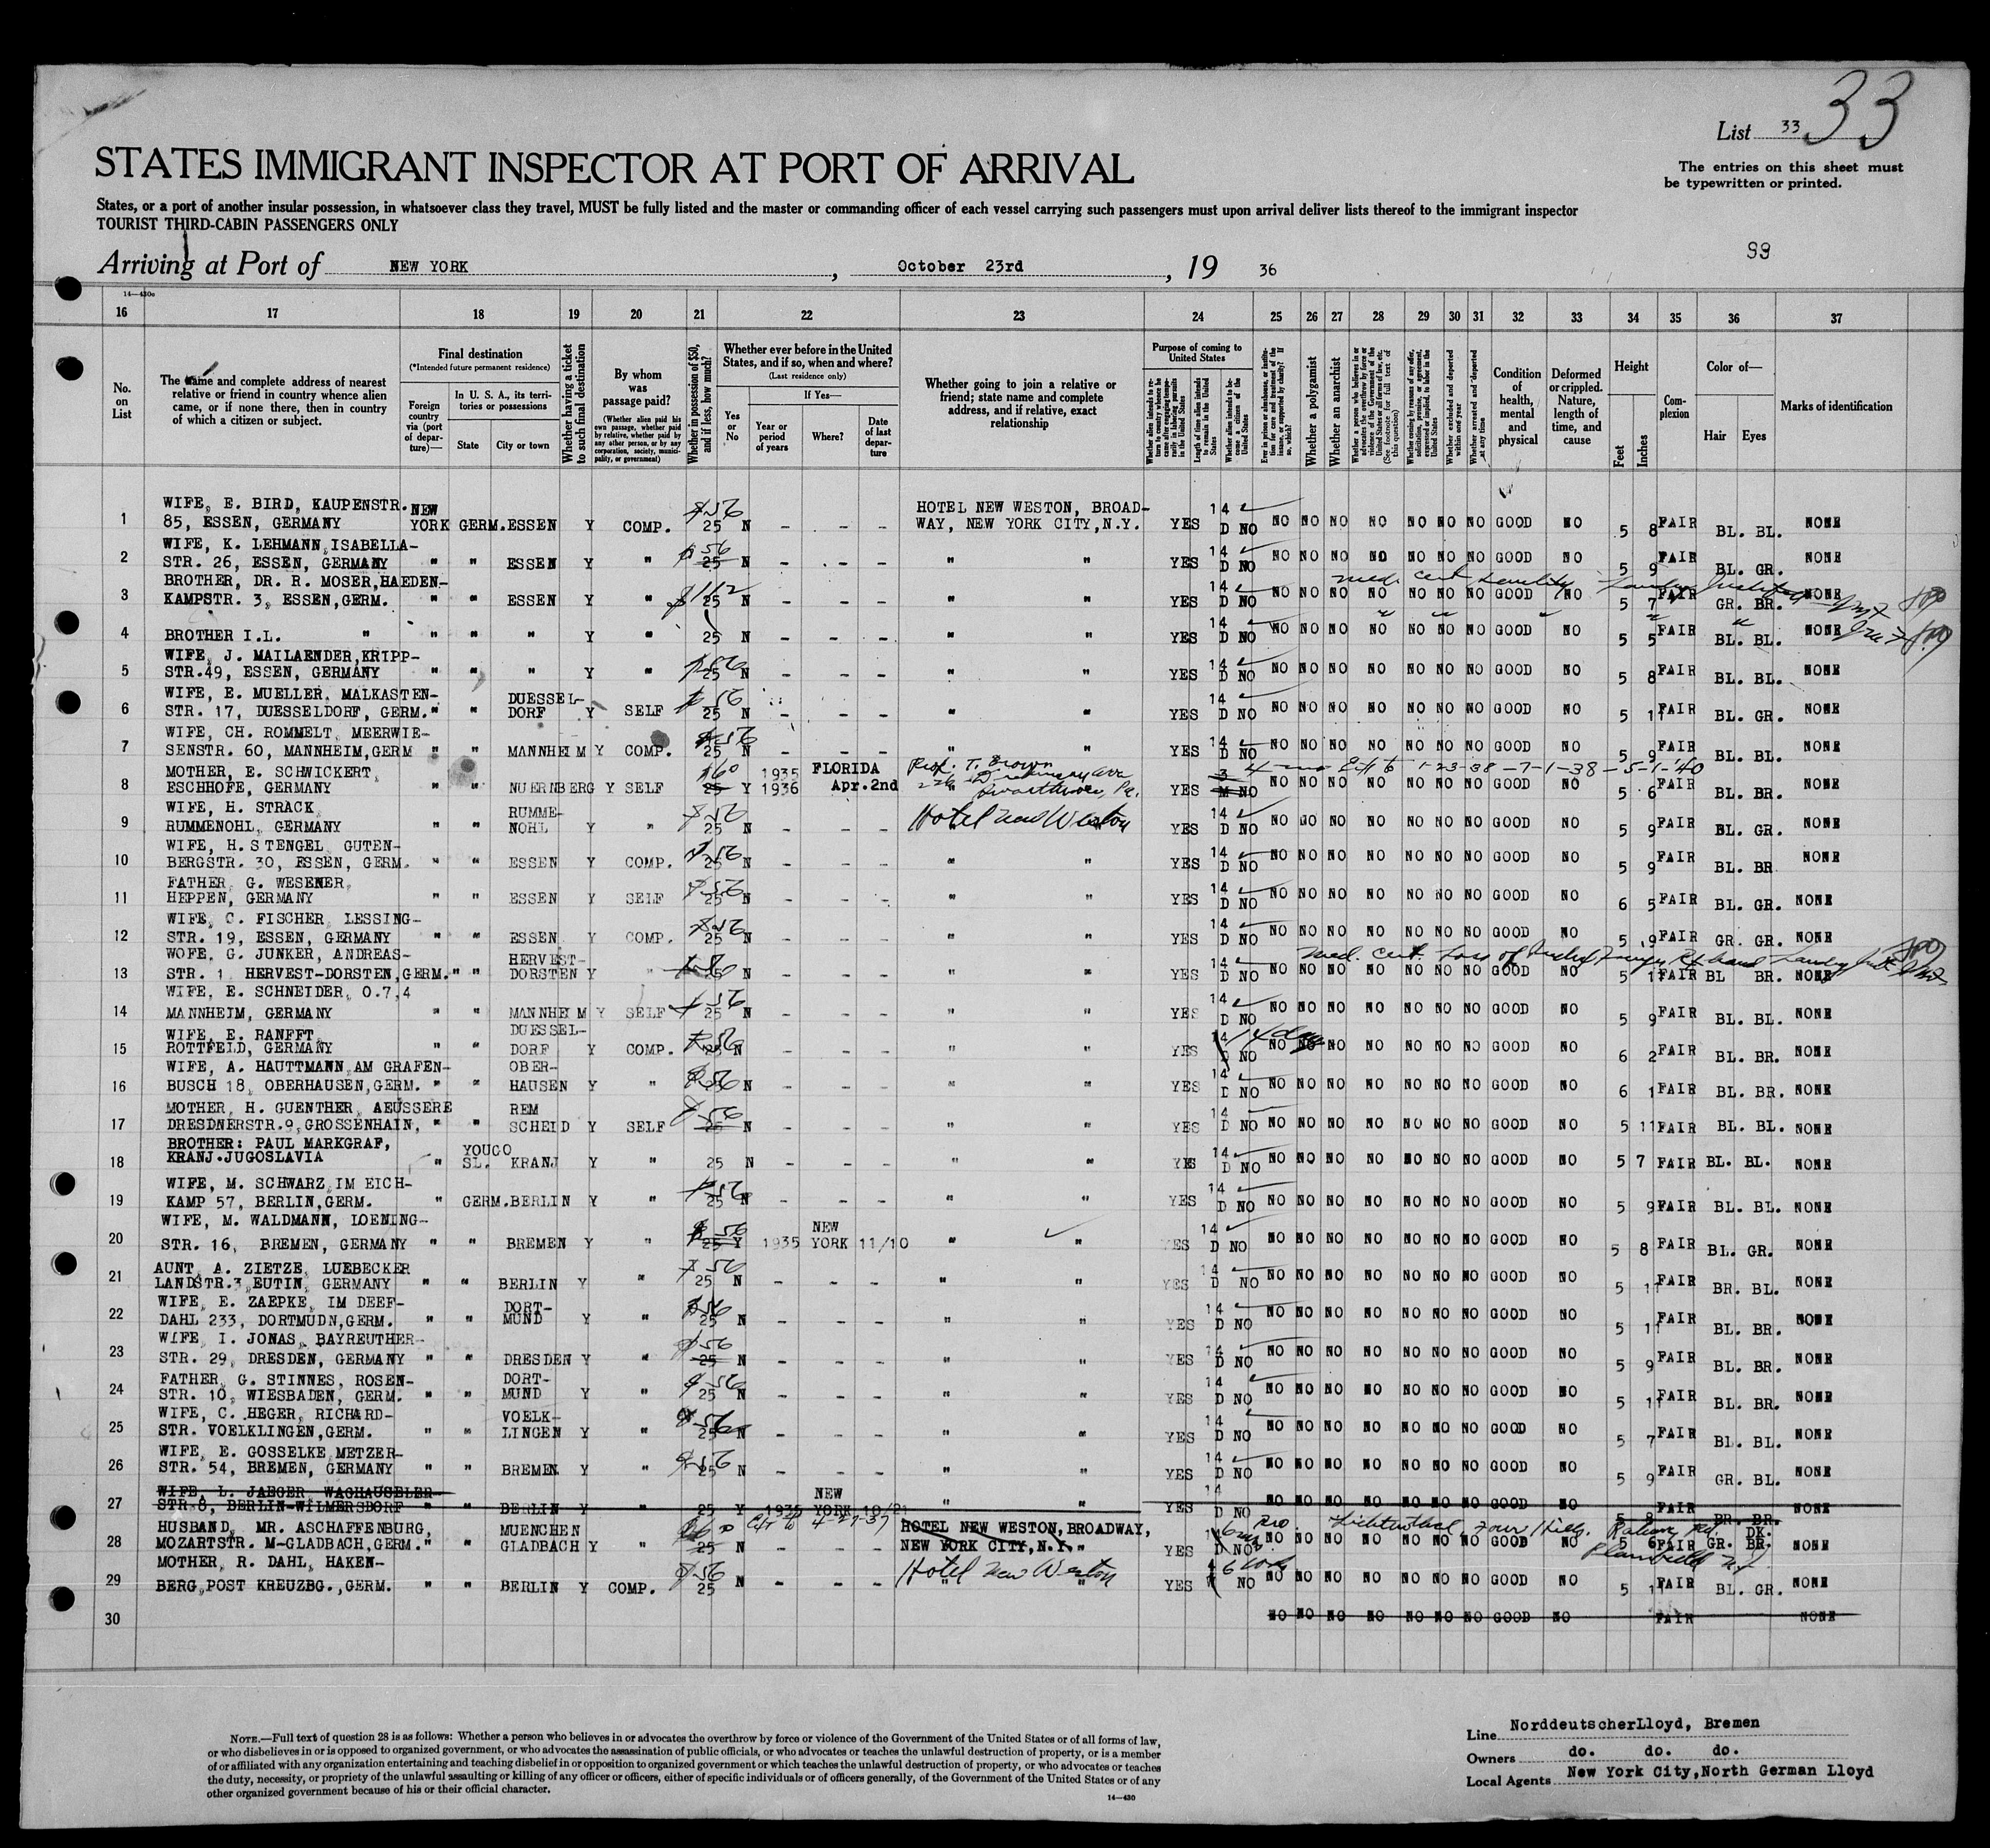 33
List 33
STATES IMMIGRANT INSPECTOR AT PORT OF ARRIVAL
The entries on this sheet must
be typewritten or printed.
States, or a port of another insular possession, in whatsoever class they travel, MUST be fully listed and the master or commanding officer of each vessel carrying such passengers must upon arrival deliver lists thereof to the immigrant inspector
TOURIST THIRD-CABIN PASSENGERS ONLY
Arriving at Port of NEW YORK, October 23rd, 19 36
14—430
16 17 18 19 20 21 22 23 24 25 26 27 28 29 30 31 32 33 34 35 36 37
No. on List
The name and complete address of nearest relative or friend in country whence alien came, or if none there, then in country of which a citizen or subject.
Final destination
(*Intended future permanent residence)
Foreign country via (port of departure)—
In U. S. A., its territories or possessions
State
City or town
Whether having a ticket to such final destination
By whom was passage paid?
(Whether alien paid his own passage, whether paid by relative, whether paid by any other person, or by any corporation, society, municipality, or government)
Whether in possession of $50, and if less, how much?
Whether ever before in the United States, and if so, when and where?
(Last residence only)
Yes or No
If Yes—
Year or period of years
Where?
Date of last departure
Whether going to join a relative or friend; state name and complete address, and if relative, exact relationship
Purpose of coming to United States
Length of time alien intends to remain in the United States
Whether alien intends to become a citizen of the United States
Whether a polygamist
Whether an anarchist
(See footnote for full text of this question)
Whether excluded and deported within one year
Whether arrested and deported at any time
Condition of health, mental and physical
Deformed or crippled. Nature, length of time, and cause
Height
Feet
Inches
Complexion
Color of—
Hair
Eyes
Marks of identification
WIFE, E. BIRD, KAUPENSTR. NEW HOTEL NEW WESTON, BROAD- 14
1 85, ESSEN, GERMANY YORK GERM. ESSEN Y COMP. 25 N - - - WAY, NEW YORK CITY, N.Y. YES D NO NO NO NO NO NO NO NO GOOD NO 5 8 FAIR BL. BL. NONE
WIFE, K. LEHMANN, ISABELLA- 14
2 STR. 26, ESSEN, GERMANY " " ESSEN Y " 25 N - - - " " YES D NO NO NO NO NO NO NO NO GOOD NO 5 9 FAIR BL. GR. NONE
BROTHER, DR. R. MOSER, HAEDEN- 14
3 KAMPSTR. 3, ESSEN, GERM. " " ESSEN Y " $112 25 N - - - " " YES D NO NO NO NO NO NO NO NO GOOD NO 5 7 FAIR GR. BR. NONE
med. cert. senility
4 BROTHER I.L. " " " " Y " 25 N - - - " " YES 14 D NO NO NO NO NO NO NO NO GOOD NO 5 5 FAIR BL. BL. NONE
WIFE, J. MAILAENDER, KRIPP- 14
5 STR. 49, ESSEN, GERMANY " " " Y 25 N - - - " " YES D NO NO NO NO NO NO NO NO GOOD NO 5 8 FAIR BL. BL. NONE
WIFE, E. MUELLER, MALKASTEN- DUESSEL- 14
6 STR. 17, DUESSELDORF, GERM. " " DORF Y SELF 25 N - - - " " YES D NO NO NO NO NO NO NO NO GOOD NO 5 11 FAIR BL. GR. NONE
WIFE, CH. ROMMELT, MEERWIE- 14
7 SENSTR. 60, MANNHEIM, GERM " " MANNHEIM Y COMP. 25 N - - - " " YES D NO NO NO NO NO NO NO NO GOOD NO 5 9 FAIR BL. BL. NONE
MOTHER, E. SCHWICKERT, 60 1935 FLORIDA Prof. T. Brown
8 ESCHHOFE, GERMANY " " NUERNBERG Y SELF 25 Y 1936 Apr. 2nd Swarthmore, Pa. YES 3 M NO NO NO NO NO NO NO NO GOOD NO 5 6 FAIR BL. BR. NONE
Ext to 1-23-38 - 7-1-38 - 5-1-40
WIFE, H. STRACK, RUMME- 14
9 RUMMENOHL, GERMANY " " NOHL Y " 25 N - - - Hotel New Weston YES D NO NO GO NO NO NO NO NO GOOD NO 5 9 FAIR BL. GR. NONE
WIFE, H. STENGEL GUTEN- 14
10 BERGSTR. 30, ESSEN, GERM. " " ESSEN Y COMP. 25 N - - - " " YES D NO NO NO NO NO NO NO NO GOOD NO 5 9 FAIR BL. BR NONE
FATHER, G. WESENER, 14
11 HEPPEN, GERMANY " " ESSEN Y SELF 25 N - - - " " YES D NO NO NO NO NO NO NO NO GOOD NO 6 5 FAIR BL. GR. NONE
WIFE, C. FISCHER, LESSING- 14
12 STR. 19, ESSEN, GERMANY " " ESSEN Y COMP. 25 N - - - " " YES D NO NO NO NO NO NO NO NO GOOD NO 5 9 FAIR GR. GR. NONE
WOFE, G. JUNKER, ANDREAS- HERVEST- 14
13 STR. 1 HERVEST-DORSTEN, GERM. " " DORSTEN Y " 25 N - - - " " YES D NO NO NO NO NO NO NO NO GOOD NO 5 11 FAIR BL BR. NONE
med. cert. Loss of
WIFE, E. SCHNEIDER, O.7,4 14
14 MANNHEIM, GERMANY " " MANNHEIM Y SELF 25 N - - - " " YES D NO NO NO NO NO NO NO NO GOOD NO 5 9 FAIR BL. BL. NONE
WIFE, E. RANFFT, DUESSEL- 14
15 ROTTFELD, GERMANY " " DORF Y COMP. 25 N - - - " " YES D NO NO NO NO NO NO NO NO GOOD NO 6 2 FAIR BL. BR. NONE
WIFE, A. HAUTTMANN, AM GRAFEN- OBER- 14
16 BUSCH 18, OBERHAUSEN, GERM. " " HAUSEN Y " N - - - " " YES D NO NO NO NO NO NO NO NO GOOD NO 6 1 FAIR BL. BR. NONE
MOTHER, H. GUENTHER, AEUSSERE REM 14
17 DRESDNERSTR. 9, GROSSENHAIN, " " SCHEID Y SELF 25 N - - - " " YES D NO NO NO NO NO NO NO NO GOOD NO 5 11 FAIR BL. BL. NONE
BROTHER: PAUL MARKGRAF, YOUGO 14
18 KRANJ.JUGOSLAVIA " SL. KRANJ Y " 25 N - - - " " YES D NO NO NO NO NO NO NO NO GOOD NO 5 7 FAIR BL. BL. NONE
WIFE, M. SCHWARZ, IM EICH- 14
19 KAMP 57, BERLIN, GERM. " GERM. BERLIN Y " 25 N - - - " " YES D NO NO NO NO NO NO NO NO GOOD NO 5 9 FAIR BL. BL. NONE
WIFE, M. WALDMANN, LOENING- NEW 14
20 STR. 16, BREMEN, GERMANY " " BREMEN Y " 25 Y 1935 YORK 11/10 " " YES D NO NO NO NO NO NO NO NO GOOD NO 5 8 FAIR BL. GR. NONE
AUNT, A. ZIETZE, LUEBECKER 14
21 LANDSTR. 3, EUTIN, GERMANY " " BERLIN Y " 25 N - - - " " YES D NO NO NO NO NO NO NO NO GOOD NO 5 11 FAIR BR. BL. NONE
WIFE, E. ZAEPKE, IM DEEF- DORT- 14
22 DAHL 233, DORTMUDN, GERM. " " MUND Y " 25 N - - - " " YES D NO NO NO NO NO NO NO NO GOOD NO 5 11 FAIR BL. BR. NONE
WIFE I. JONAS, BAYREUTHER- 14
23 STR. 29, DRESDEN, GERMANY " " DRESDEN Y " 25 N - - - " " YES D NO NO NO NO NO NO NO NO GOOD NO 5 9 FAIR BL. BR. NONE
FATHER, G. STINNES, ROSEN- DORT- 14
24 STR. 10, WIESBADEN, GERM. " " MUND Y " 25 N - - - " " YES D NO NO NO NO NO NO NO NO GOOD NO 5 11 FAIR BL. BR. NONE
WIFE, C. HEGER, RICHARD- VOELK- 14
25 STR. VOELKLINGEN, GERM. " " LINGEN Y " 25 N - - - " " YES D NO NO NO NO NO NO NO NO GOOD NO 5 7 FAIR BL. BL. NONE
WIFE, E. GOSSELKE METZER- 14
26 STR. 54, BREMEN, GERMANY " " BREMEN Y " 25 N - - - " " YES D NO NO NO NO NO NO NO NO GOOD NO 5 9 FAIR GR. BL. NONE
WIFE, L. JAEGER, WAGHAUSELER- NEW 14
27 STR. 8, BERLIN-WILMERSDORF " " BERLIN Y " 25 Y 1935 YORK 10/21 " " YES D NO NO NO NO NO NO NO NO GOOD NO FAIR BR. BR. NONE
HUSBAND, MR. ASCHAFFENBURG, MUENCHEN 4-27-37 HOTEL NEW WESTON, BROADWAY, DK.
28 MOZARTSTR. M-GLADBACH, GERM. " " GLADBACH Y " 25 N - - - NEW YORK CITY, N.Y. " YES D NO NO NO NO NO NO NO NO GOOD NO 5 6 FAIR GR. BR. NONE
Plainfield N.J.
MOTHER, R. DAHL, HAKEN- Hotel New Weston
29 BERG, POST KREUZBG., GERM. " " BERLIN Y COMP. 25 N - - - " " YES NO NO NO NO NO NO NO NO GOOD NO 5 11 FAIR BL. GR. NONE
30 NO NO NO NO NO NO NO GOOD NO FAIR NONE
NOTE.—Full text of question 28 is as follows: Whether a person who believes in or advocates the overthrow by force or violence of the Government of the United States or of all forms of law,
or who disbelieves in or is opposed to organized government, or who advocates the assassination of public officials, or who advocates or teaches the unlawful destruction of property, or is a member
of or affiliated with any organization entertaining and teaching disbelief in or opposition to organized government or which teaches the unlawful destruction of property, or who advocates or teaches
the duty, necessity, or propriety of the unlawful assaulting or killing of any officer or officers, either of specific individuals or of officers generally, of the Government of the United States or of any
other organized government because of his or their official character.
14—430
Line NorddeutscherLloyd, Bremen
Owners do. do. do.
Local Agents New York City, North German Lloyd